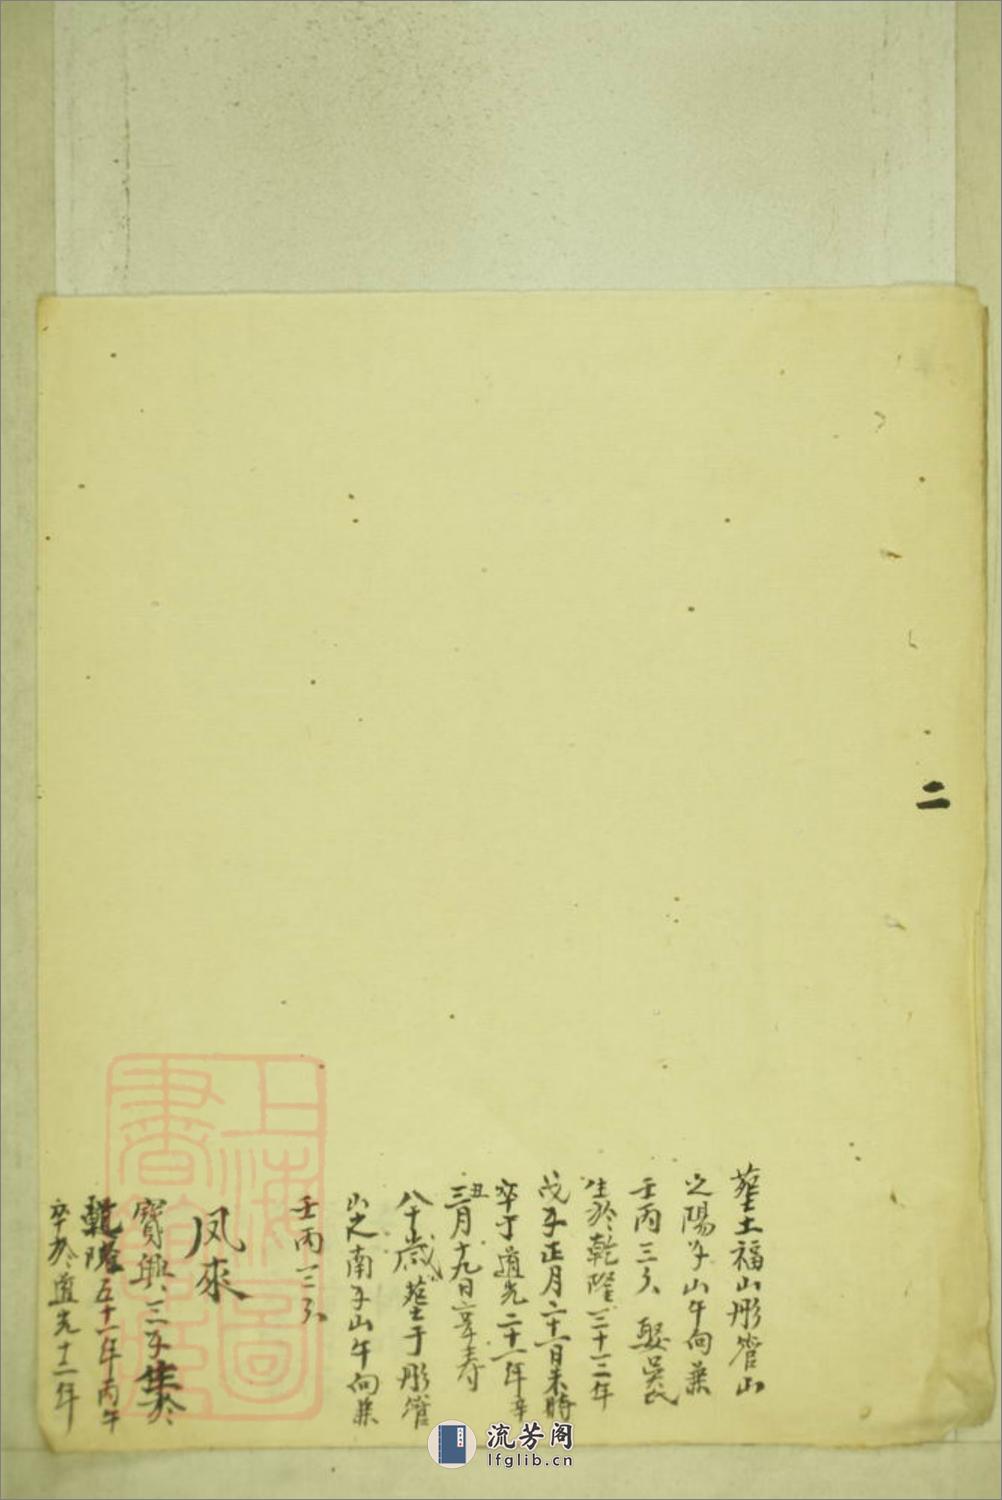 二
葬土福山彤管山
之陽子山午向兼
壬丙三分 娶吳氏
生於乾隆三十三年
戊子正月二十一日未時
卒于道光二十一年辛
丑三月十九日享寿
八十歲葬于彤管
山之南子山午向兼
壬丙三分
凤來
寶興三子生於
乾隆五十一年丙午
卒於道光十一年
上海圖書館藏
流芳阁
lfglib.cn